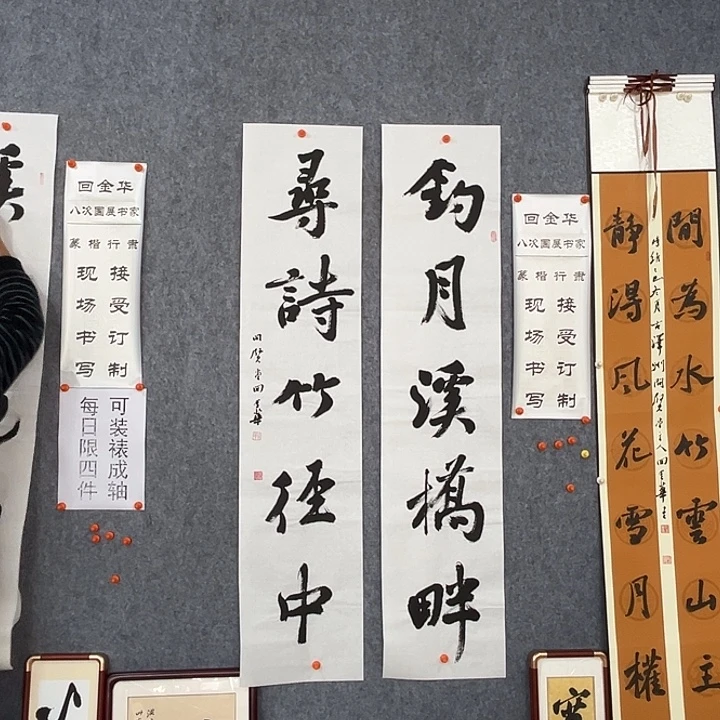 回金华
八次国展书家
篆楷行隶
接受订制
现场书写
可装裱成轴
每日限四件
釣月溪橋畔
尋詩竹徑中
回金华
八次国展书家
篆楷行隶
接受订制
现场书写
間為水竹雲山主
靜淂風花雪月權